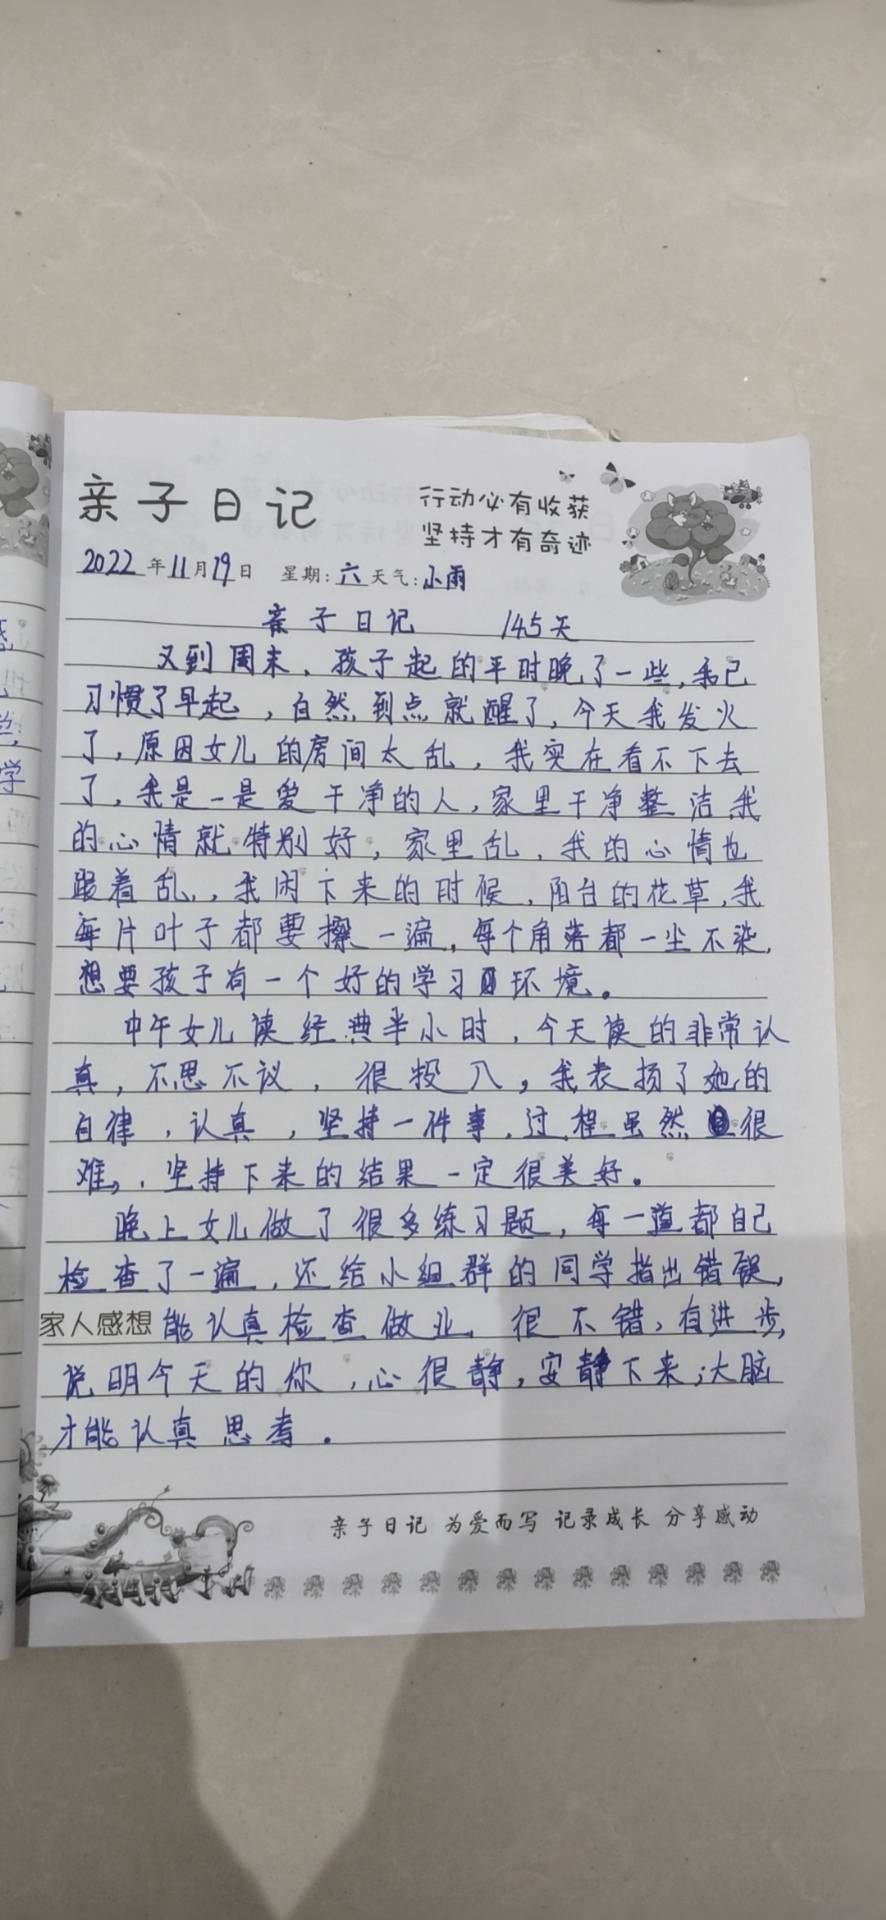 亲子日记
行动必有收获
坚持才有奇迹
2022年11月19日 星期:六 天气:小雨
亲子日记 145天
又到周末，孩子起的平时晚了一些，我已
习惯了早起，自然到点就醒了，今天我发火
了，原因女儿的房间太乱，我实在看不下去
了，我是一是爱干净的人，家里干净整洁我
的心情就特别好，家里乱，我的心情也
跟着乱，我闲下来的时候，阳台的花草，我
每片叶子都要擦一遍，每个角落都一尘不染，
想要孩子有一个好的学习环境。
中午女儿读经典半小时，今天读的非常认
真，不思不议，很投入，我表扬了她的
自律，认真，坚持一件事，过程虽然很
难，坚持下来的结果一定很美好。
晚上女儿做了很多练习题，每一道都自己
检查了一遍，还给小组群的同学指出错误，
家人感想 能认真检查做业，很不错，有进步，
说明今天的你，心很静，安静下来，大脑
才能认真思考。
亲子日记 为爱而写 记录成长 分享感动